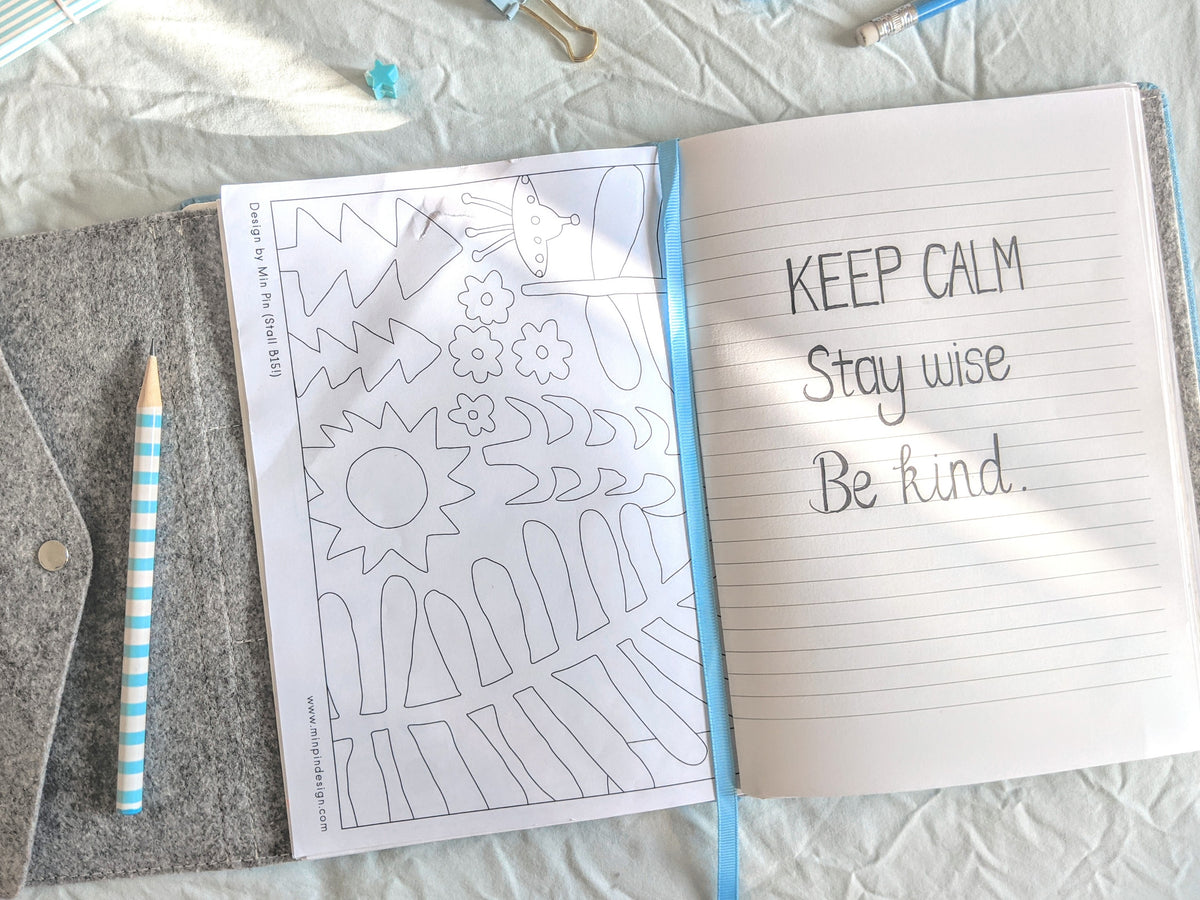 Design by Min Pin (Stall B15!)
www.minpindesign.com
KEEP CALM
Stay wise
Be kind.